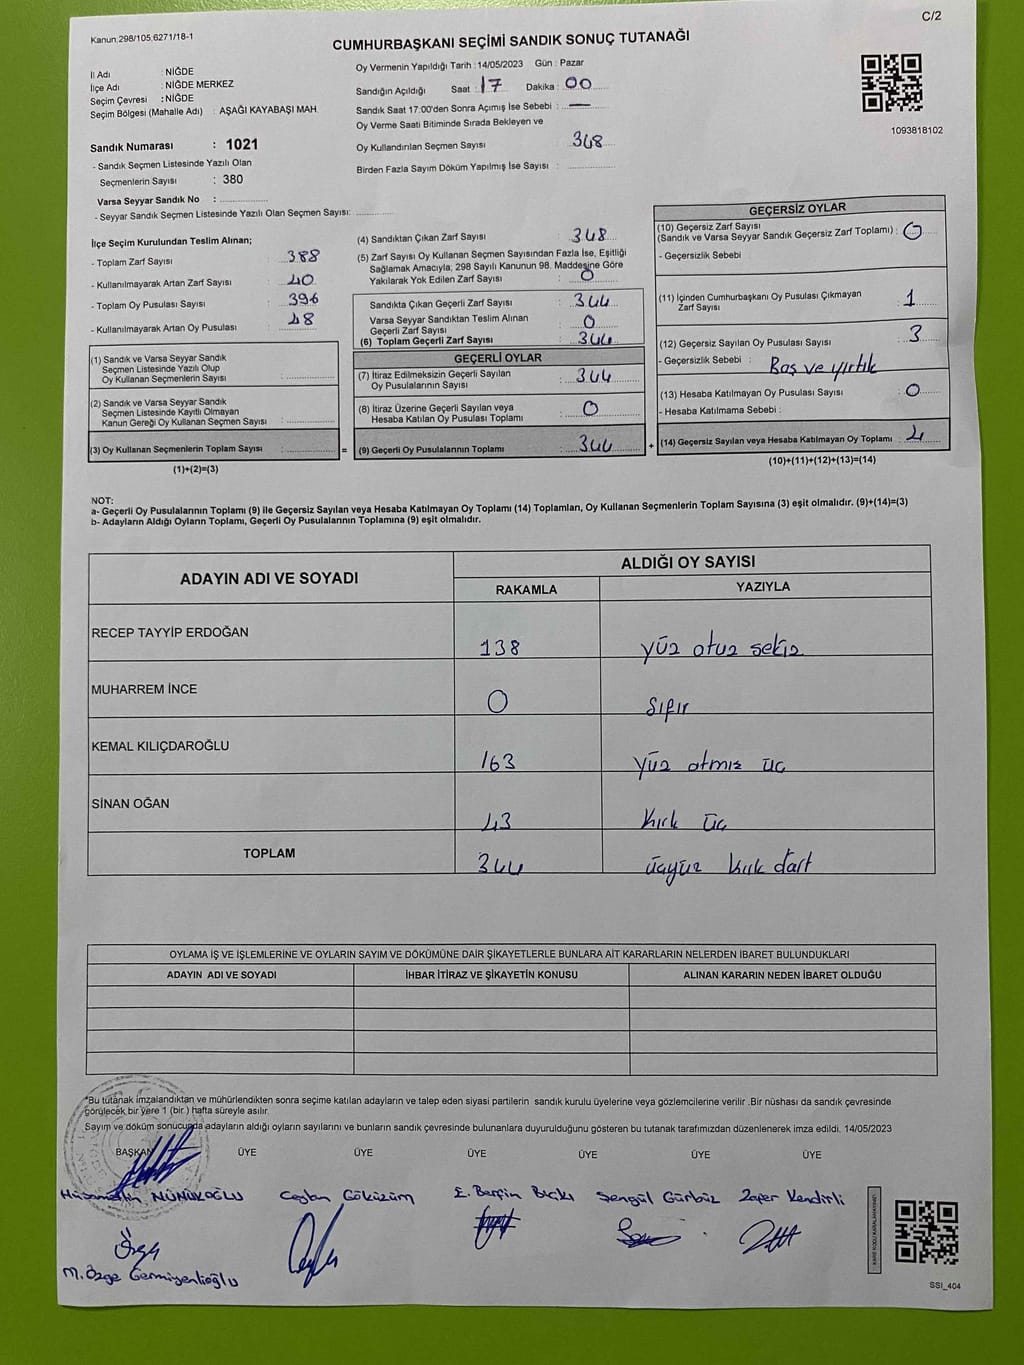 C/2
Kanun:298/105,6271/18-1
CUMHURBAŞKANI SEÇİMİ SANDIK SONUÇ TUTANAĞI
İl Adı : NİĞDE
İlçe Adı : NİĞDE MERKEZ
Seçim Çevresi : NİĞDE
Seçim Bölgesi (Mahalle Adı) : AŞAĞI KAYABAŞI MAH.
Sandık Numarası : 1021
- Sandık Seçmen Listesinde Yazılı Olan
Seçmenlerin Sayısı : 380
Varsa Seyyar Sandık No :
- Seyyar Sandık Seçmen Listesinde Yazılı Olan Seçmen Sayısı:
Oy Vermenin Yapıldığı Tarih : 14/05/2023 Gün : Pazar
Sandığın Açıldığı Saat : 17 Dakika : 00
Sandık Saat 17:00'den Sonra Açımış İse Sebebi : —
Oy Verme Saati Bitiminde Sırada Bekleyen ve
Oy Kullandırılan Seçmen Sayısı : 348
Birden Fazla Sayım Döküm Yapılmış İse Sayısı :
1093818102
İlçe Seçim Kurulundan Teslim Alınan;
- Toplam Zarf Sayısı : 388
- Kullanılmayarak Artan Zarf Sayısı : 40
- Toplam Oy Pusulası Sayısı : 396
- Kullanılmayarak Artan Oy Pusulası : 48
(1) Sandık ve Varsa Seyyar Sandık
Seçmen Listesinde Yazılı Olup
Oy Kullanan Seçmenlerin Sayısı :
(2) Sandık ve Varsa Seyyar Sandık
Seçmen Listesinde Kayıtlı Olmayan
Kanun Gereği Oy Kullanan Seçmen Sayısı :
(3) Oy Kullanan Seçmenlerin Toplam Sayısı : =
(1)+(2)=(3)
(4) Sandıktan Çıkan Zarf Sayısı : 348
(5) Zarf Sayısı Oy Kullanan Seçmen Sayısından Fazla İse, Eşitliği
Sağlamak Amacıyla, 298 Sayılı Kanunun 98. Maddesine Göre
Yakılarak Yok Edilen Zarf Sayısı : 0
Sandıkta Çıkan Geçerli Zarf Sayısı : 344
Varsa Seyyar Sandıktan Teslim Alınan
Geçerli Zarf Sayısı : 0
(6) Toplam Geçerli Zarf Sayısı : 344
GEÇERLİ OYLAR
(7) İtiraz Edilmeksizin Geçerli Sayılan
Oy Pusulalarının Sayısı : 344
(8) İtiraz Üzerine Geçerli Sayılan veya
Hesaba Katılan Oy Pusulası Toplamı : 0
(9) Geçerli Oy Pusulalarının Toplamı : 344 +
GEÇERSİZ OYLAR
(10) Geçersiz Zarf Sayısı
(Sandık ve Varsa Seyyar Sandık Geçersiz Zarf Toplamı) : 0
- Geçersizlik Sebebi :
(11) İçinden Cumhurbaşkanı Oy Pusulası Çıkmayan
Zarf Sayısı : 1
(12) Geçersiz Sayılan Oy Pusulası Sayısı : 3
- Geçersizlik Sebebi : Boş ve yırtık
(13) Hesaba Katılmayan Oy Pusulası Sayısı : 0
- Hesaba Katılmama Sebebi :
(14) Geçersiz Sayılan veya Hesaba Katılmayan Oy Toplamı : 4
(10)+(11)+(12)+(13)=(14)
NOT:
a- Geçerli Oy Pusulalarının Toplamı (9) ile Geçersiz Sayılan veya Hesaba Katılmayan Oy Toplamı (14) Toplamları, Oy Kullanan Seçmenlerin Toplam Sayısına (3) eşit olmalıdır. (9)+(14)=(3)
b- Adayların Aldığı Oyların Toplamı, Geçerli Oy Pusulalarının Toplamına (9) eşit olmalıdır.
ADAYIN ADI VE SOYADI
ALDIĞI OY SAYISI
RAKAMLA YAZIYLA
RECEP TAYYİP ERDOĞAN 138 yüz otuz sekiz
MUHARREM İNCE 0 sıfır
KEMAL KILIÇDAROĞLU 163 yüz atmış üç
SİNAN OĞAN 43 kırk üç
TOPLAM 344 üçyüz kırk dört
OYLAMA İŞ VE İŞLEMLERİNE VE OYLARIN SAYIM VE DÖKÜMÜNE DAİR ŞİKAYETLERLE BUNLARA AİT KARARLARIN NELERDEN İBARET BULUNDUKLARI
ADAYIN ADI VE SOYADI İHBAR İTİRAZ VE ŞİKAYETİN KONUSU ALINAN KARARIN NEDEN İBARET OLDUĞU
*Bu tutanak imzalandıktan ve mühürlendikten sonra seçime katılan adayların ve talep eden siyasi partilerin sandık kurulu üyelerine veya gözlemcilerine verilir .Bir nüshası da sandık çevresinde
görülecek bir yere 1 (bir ) hafta süreyle asılır.
Sayım ve döküm sonucunda adayların aldığı oyların sayılarını ve bunların sandık çevresinde bulunanlara duyurulduğunu gösteren bu tutanak tarafımızdan düzenlenerek imza edildi. 14/05/2023
BAŞKAN ÜYE ÜYE ÜYE ÜYE ÜYE ÜYE
Hüsamettin NÜNÜKOĞLU Ceylan Göküzüm E. Berfin Bıçkı Şengül Gürbüz Zafer Kendirli
Özge
M. Özge Germiyenlioğlu
SSI_404